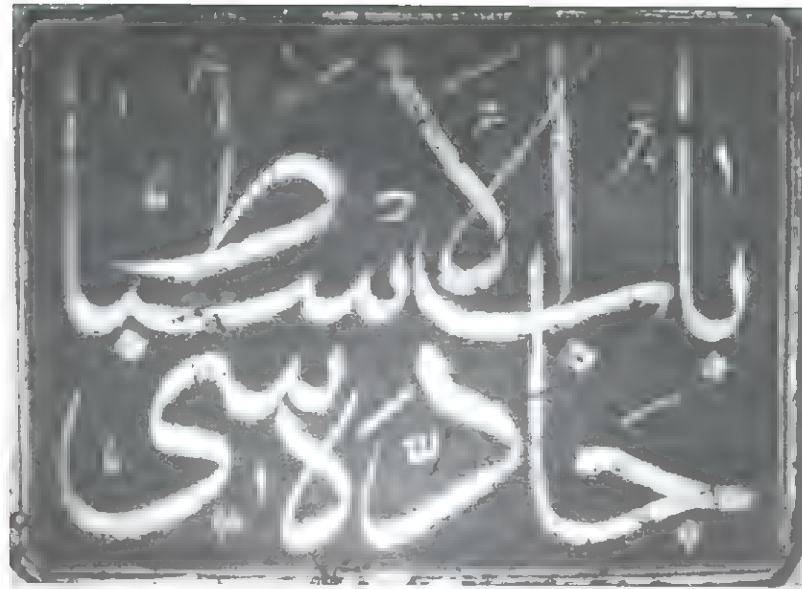 باب الاسباط
جاده سی